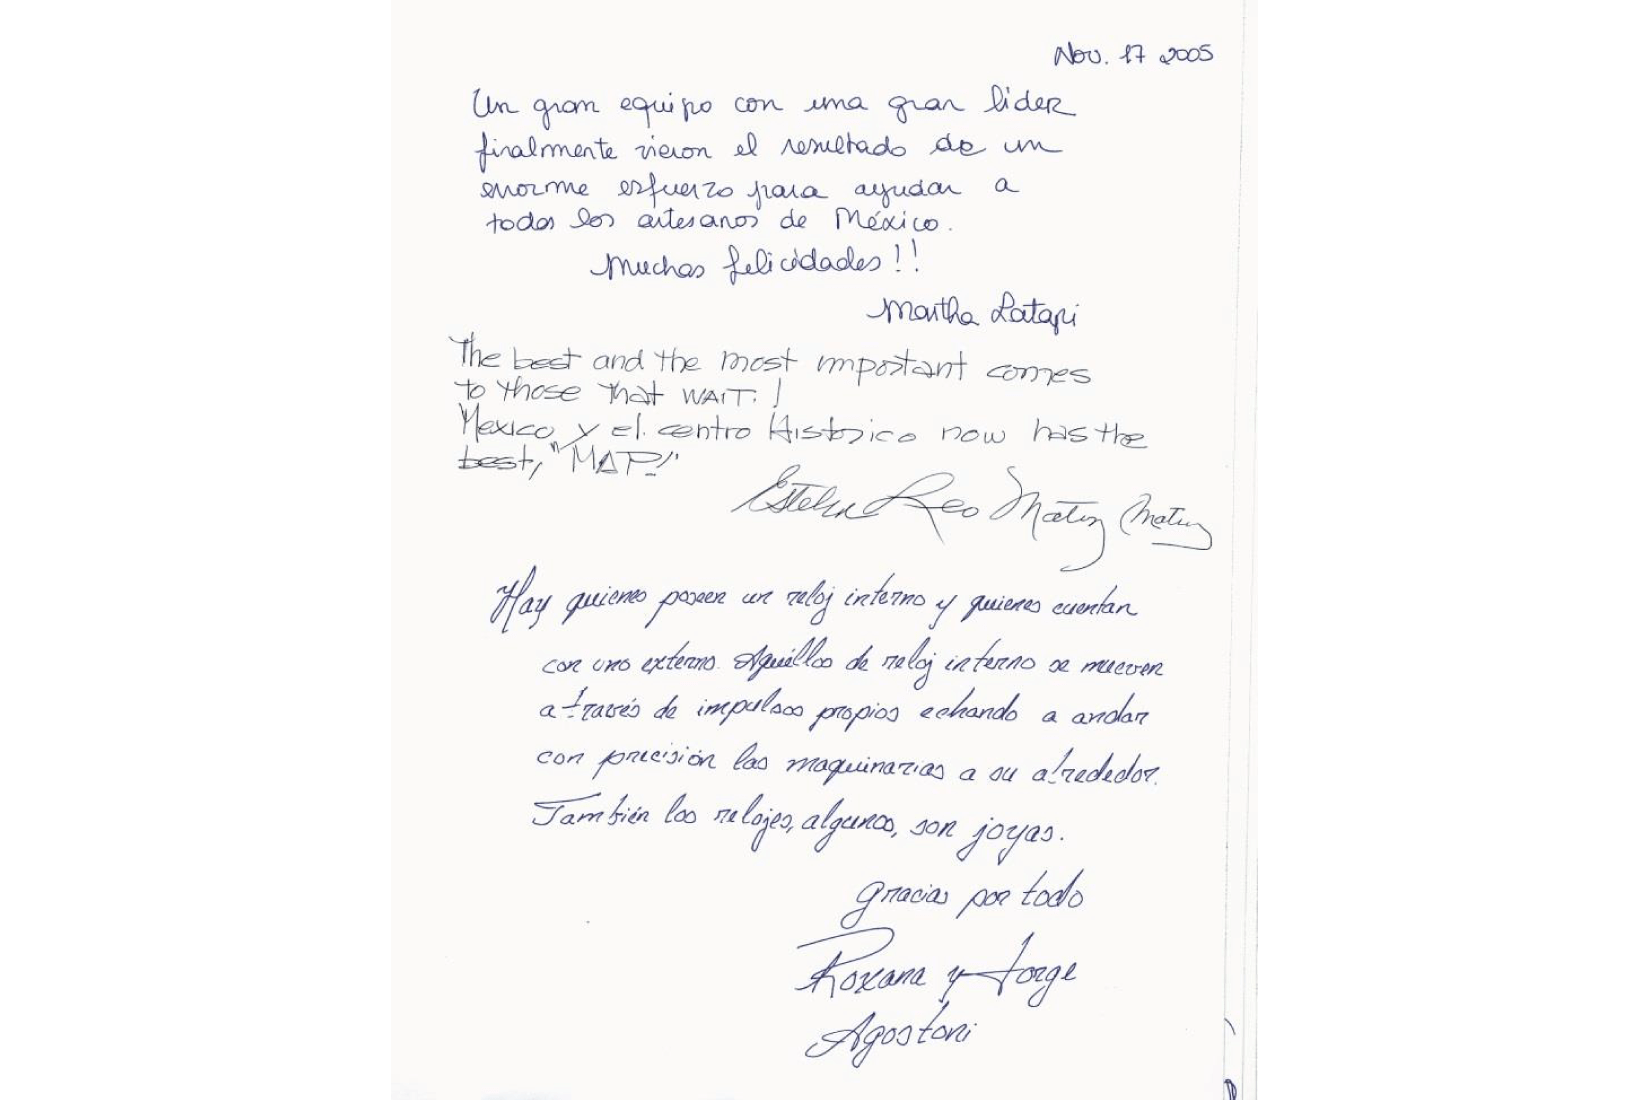 Nov. 17 2005
Un gran equipo con una gran lider
finalmente vieron el resultado de un
enorme esfuerzo para ayudar a
todos los artesanos de México.
Muchas felicidades!!
Martha Latapi
The best and the most important comes
to those that WAIT. !
Mexico y el centro Historico now has the
best, "MAP!"
Estela Leo Matiz
Hay quienes poseen un reloj interno y quienes cuentan
con uno externo. Aquéllos de reloj interno se mueven
a través de impulsos propios echando a andar
con precisión las maquinarias a su alrededor.
También los relojes, algunos, son joyas.
gracias por todo
Roxana y Jorge
Agostoni